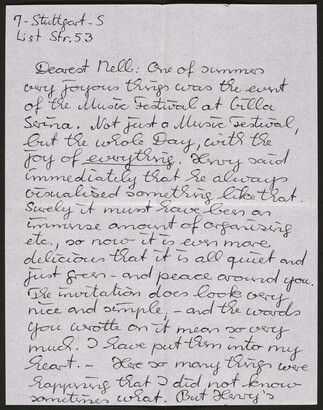 7-Stuttgart-S
List Str. 53
Dearest Nell: One of summers
very joyous things was the event
of the Music Festival at Villa
Serina. Not just a Music Festival,
but the whole Day, with the
joy of everything. Henry said
immediately that he always
visualised something like that.
Surely it must have been an
immense amount of organising
etc., so now it is even more
delicious that it is all quiet and
just green - and peace around you.
The invitation does look very
nice and simple, - and the words
you wrotte on it mean so very
much. I have put them into my
heart. - Here so many things were
happening that I did not know
sometimes what. But Henry's